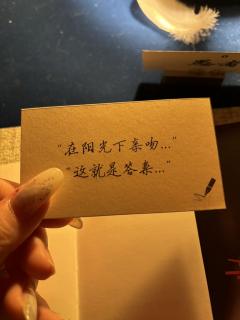 “在阳光下亲吻...”
“这就是答案...”